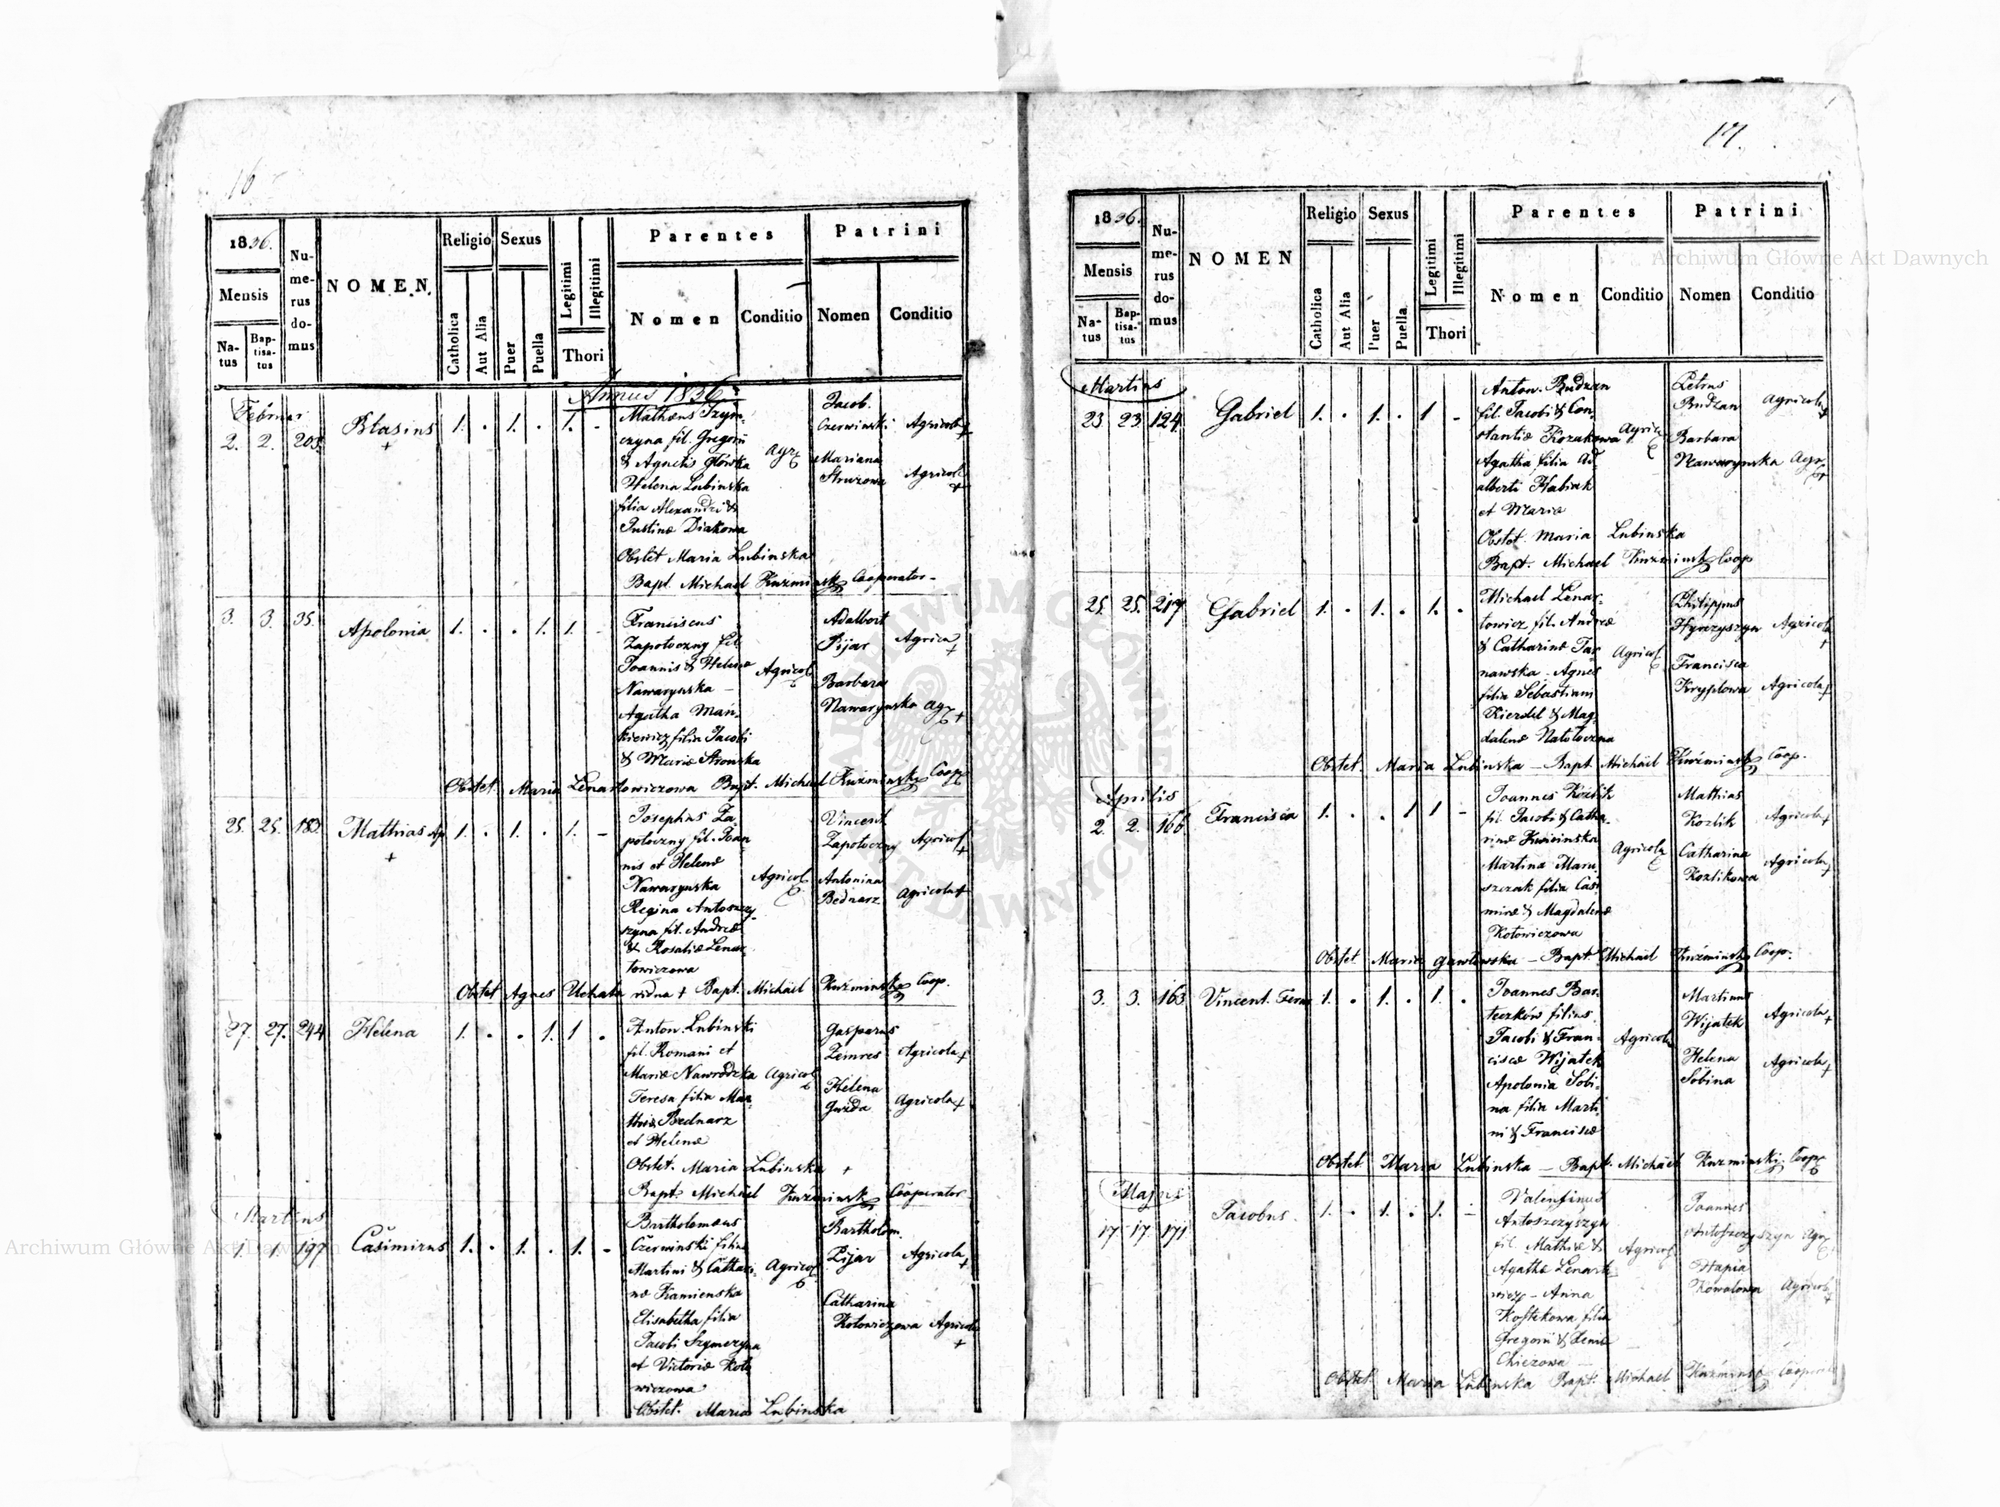 16
1836.
Mensis
Na-
tus
Bap-
tisa-
tus
Nu-
me-
rus
do-
mus
NOMEN
Religio
Catholica
Aut Alia
Sexus
Puer
Puella
Legitimi
Illegitimi
Thori
Parentes
Nomen
Conditio
Patrini
Nomen
Conditio
Annus 1836
Februar
2. 2. 203. Blasius + 1. . 1. . 1. -
Mathæus Szym-
czyna fil. Gregorii
& Agnetis Główka
Helena Lubinska
filia Alexandri &
Justinæ Diakowa
Agr
Jacob.
Czerwinski Agricola +
Mariana
Struzowa Agricol +
Obstet Maria Lubinska
Bapt. Michael Kuzminski Cooperator
3. 3. 35. Apolonia 1. . . 1. 1. -
Franciscus
Zapotoczny fil.
Joannis & Helenæ
Nawarynska -
Agatha Man-
kiewicz filia Jacobi
& Mariæ
Agricol
Adalbert
Pijar Agricola +
Barbara
Nawarynska Agr +
Obstet. Maria Lenartowiczowa Bapt. Michael Kuzminski Coop
25. 25. 183. Mathias Ap + 1. . 1. . 1. -
Josephus Za-
potoczny fil. Joan-
nis et Helenæ
Nawarynska
Regina Antoszczy-
szyna fil. Andreæ
& Rosaliæ Lenar-
towiczowa
Agricol
Vincent
Zapotoczny Agricol +
Antonina
Bednarz Agricola +
Obstet Agnes Bapt. Michäel Kuzminski Coop.
27. 27. 244 Helena 1. . . 1. 1 .
Anton. Lubinski
fil. Romani et
Mariæ Nawrodzka
Teresa filia Mat-
thiæ Bednarz
et Helenæ
Agricol
Gasparus
Zeimres Agricola +
Helena
Gwizda Agricola +
Obstet. Maria Lubinska +
Bapt. Michäel Kuzminski Cooperator
Martius
1. 1. 197 Casimirus 1. . 1. . 1. -
Bartholomæus
Czerwinski filius
Martini & Cathari-
næ Kamienska
Elisabetha filia
Jacobi Szymczyna
et Victoriæ Koto-
wiczowa
Agricol
Bartholom.
Pijar Agricola +
Catharina
Kotowiczowa Agricola +
Obstet. Maria Lubinska
17.
1836.
Mensis
Na-
tus
Bap-
tisa-
tus
Nu-
me-
rus
do-
mus
NOMEN
Religio
Catholica
Aut Alia
Sexus
Puer
Puella
Legitimi
Illegitimi
Thori
Parentes
Nomen
Conditio
Patrini
Nomen
Conditio
Martius
23 23 124. Gabriel 1. . 1. . 1 -
Anton. Budzan
fil. Jacobi & Con-
stantiæ Kozakowa
Agatha filia Ad-
alberti Habiak
et Mariæ
Agric
Petrus
Budzan Agricola +
Barbara
Nawarynska Agr +
Obstet. Maria Lubinska
Bapt. Michael Kuzminski Coop
25. 25. 217 Gabriel 1. . 1. . 1. .
Michael Lenar-
towicz fil. Andreæ
& Catharinæ Ta-
nawska - Agnes
filia Sebastiani
Kierdel & Mag-
dalenæ Natoloczna
Agricol
Philippus
Hyrczyszyn Agricola +
Francisca
Kryplowa Agricola +
Obstet. Maria Lubinska - Bapt. Michäel Kuzminski Coop.
Aprilis
2. 2. 166 Francisca 1. . . 1 1 -
Joannes Kozlik
fil. Jacobi & Catha-
rinæ Kuminska
Martina Maru-
szczak filia Casi-
miræ & Magdalenæ
Kotowiczowa
Agricola
Mathias
Kozlik Agricola +
Catharina
Kozlikowa Agricola +
Obstet Maria Gawlowska - Bapt. Michäel Kuzminski Coop.
3. 3. 163 Vincent. Ferer 1. . 1. . 1. .
Joannes Bar-
teczkow filius
Jacobi & Fran-
ciscæ Wijatek
Apolonia Sobi-
na filia Marti-
ni & Franciscæ
Agricola
Martinus
Wijatek Agricola +
Helena
Sobina Agricola +
Obstet Maria Lubinska - Bapt. Michäel Kuzminski Coop
Majus
17 17. 171 Jacobus. 1. . 1. . 1. -
Valentinus
Antoszczyszyn
fil. Mathiæ &
Agathæ Lenart-
wicz - Anna
Kostekowa filia
Gregorii &
Agricol
Joannes
Antoszczyszyn Agr
Kowalowa Agricol +
Obstet Maria Lubinska Bapt. Michäel Kuzminski Cooperator
Archiwum Główne Akt Dawnych
Archiwum Główne Akt Dawnych
ARCHIWUM GŁÓWNE AKT DAWNYCH